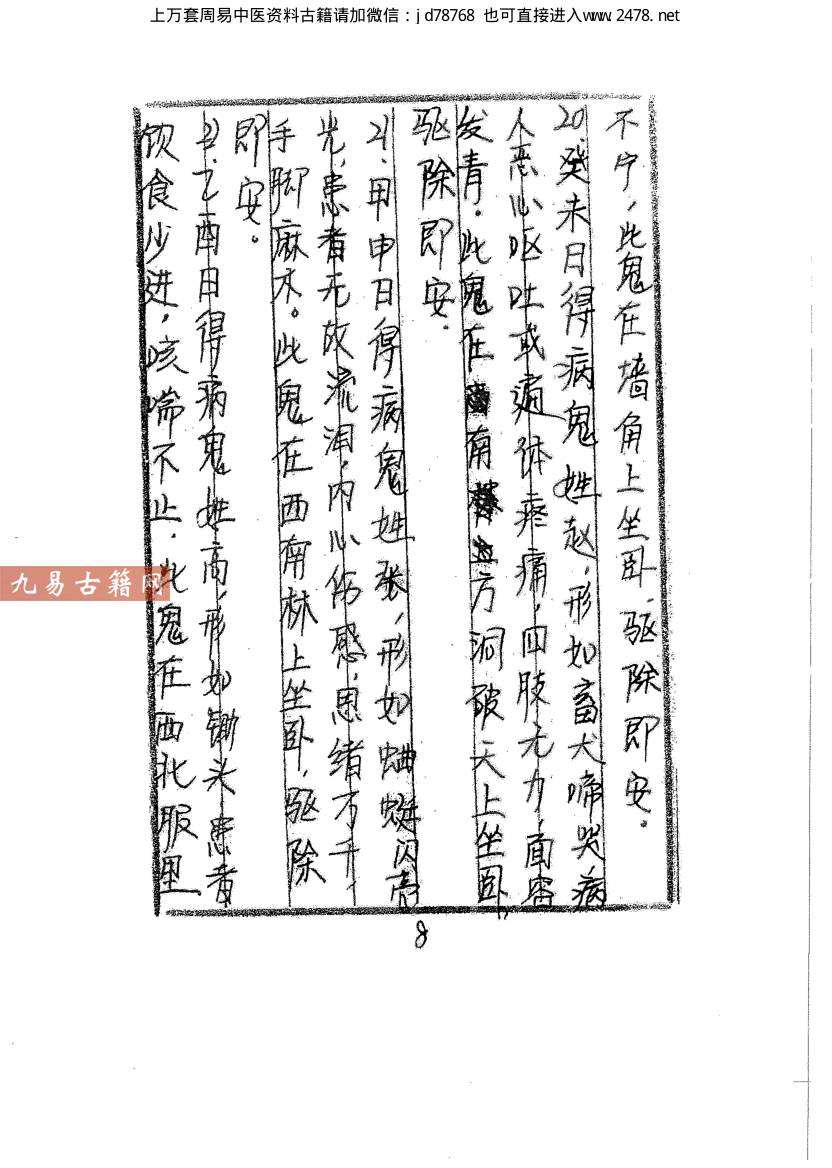 上万套周易中医资料古籍请加微信：jd78768 也可直接进入www.2478.net
不宁，此鬼在墙角上坐卧.驱除即安。
20.癸未日得病鬼姓赵，形如畜犬啼哭病
人恶心呕吐或遍体疼痛，四肢无力，面容
发青。此鬼在南方洞破天上坐卧，
驱除即安.
21、甲申日得病鬼姓张，形如蛐蜒闪亮
光，患者无故流泪，内心伤感，思绪万千，
手脚麻木。此鬼在西南林上坐卧，驱除
即安。
22.乙酉日得病鬼姓高，形如锄头患者
饮食少进，咳喘不止.此鬼在西北服里
九易古籍网
8